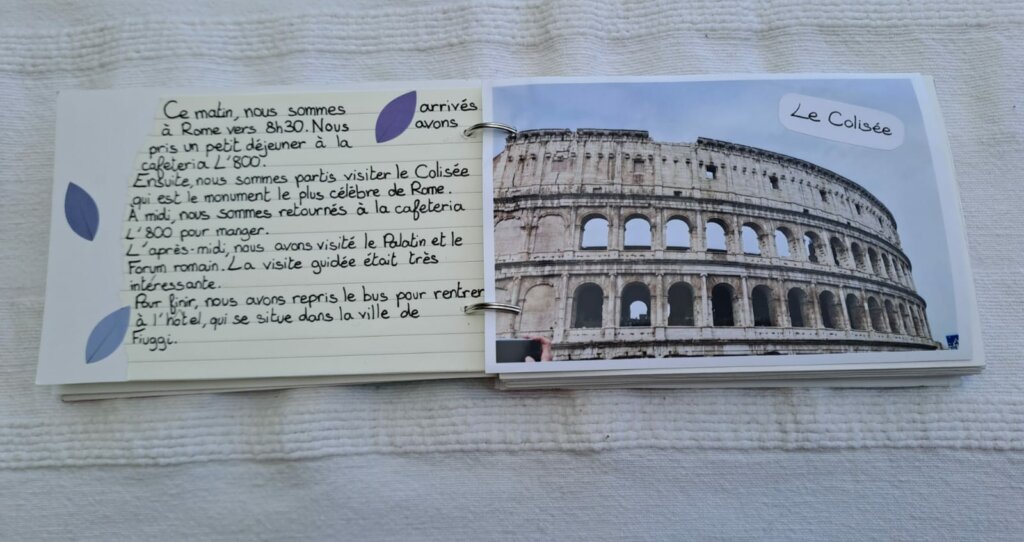 Ce matin, nous sommes arrivés
à Rome vers 8h30. Nous avons
pris un petit déjeuner à la
cafeteria L'800.
Ensuite, nous sommes partis visiter le Colisée
qui est le monument le plus célèbre de Rome.
A midi, nous sommes retournés à la cafeteria
L'800 pour manger.
L'après-midi, nous avons visité le Palatin et le
Forum romain. La visite guidée était très
intéressante.
Pour finir, nous avons repris le bus pour rentrer
à l'hôtel, qui se situe dans la ville de
Fiuggi.
Le Colisée